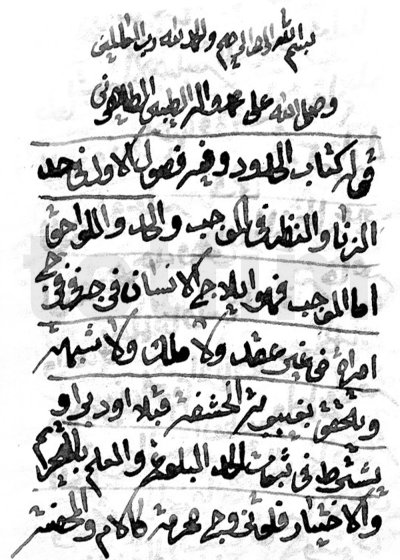 بسم الله الرحمن الرحيم والحمد لله رب العالمين
وصلى الله على محمد واله الطيبين الطاهرين
قوله كتاب الحدود وفيه فصول الاول في حد
الزنا والنظر في الموجب والحد واللواحق
اما الموجب فهو ايلاج الانسان في فرج
امراة من غير عقد ولا ملك ولا شبهة
ويتحقق بغيبوبة الحشفة قبلا او دبرا و
يشترط في ثبوت الحد البلوغ والعلم بالتحريم
والاختيار فلو تزوج محرمة كالام والمحصنة